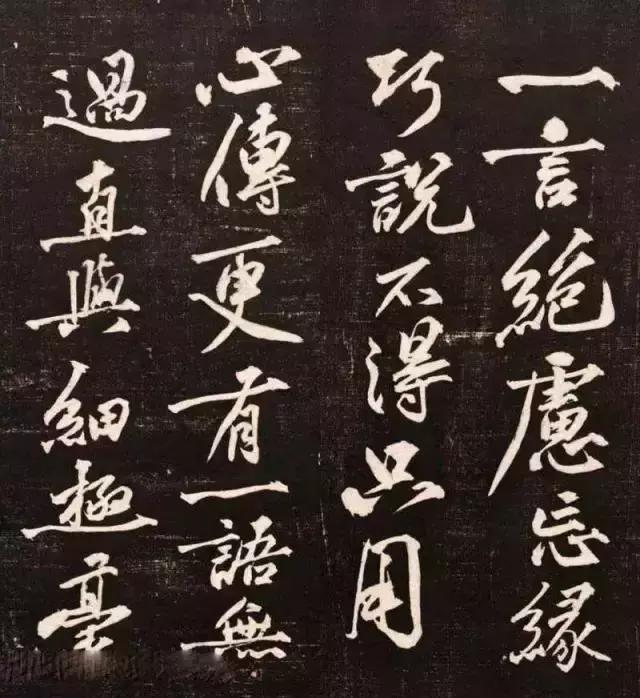 一言絶慮忘緣
巧說不得只用
心傳更有一語無
過直與細極毫